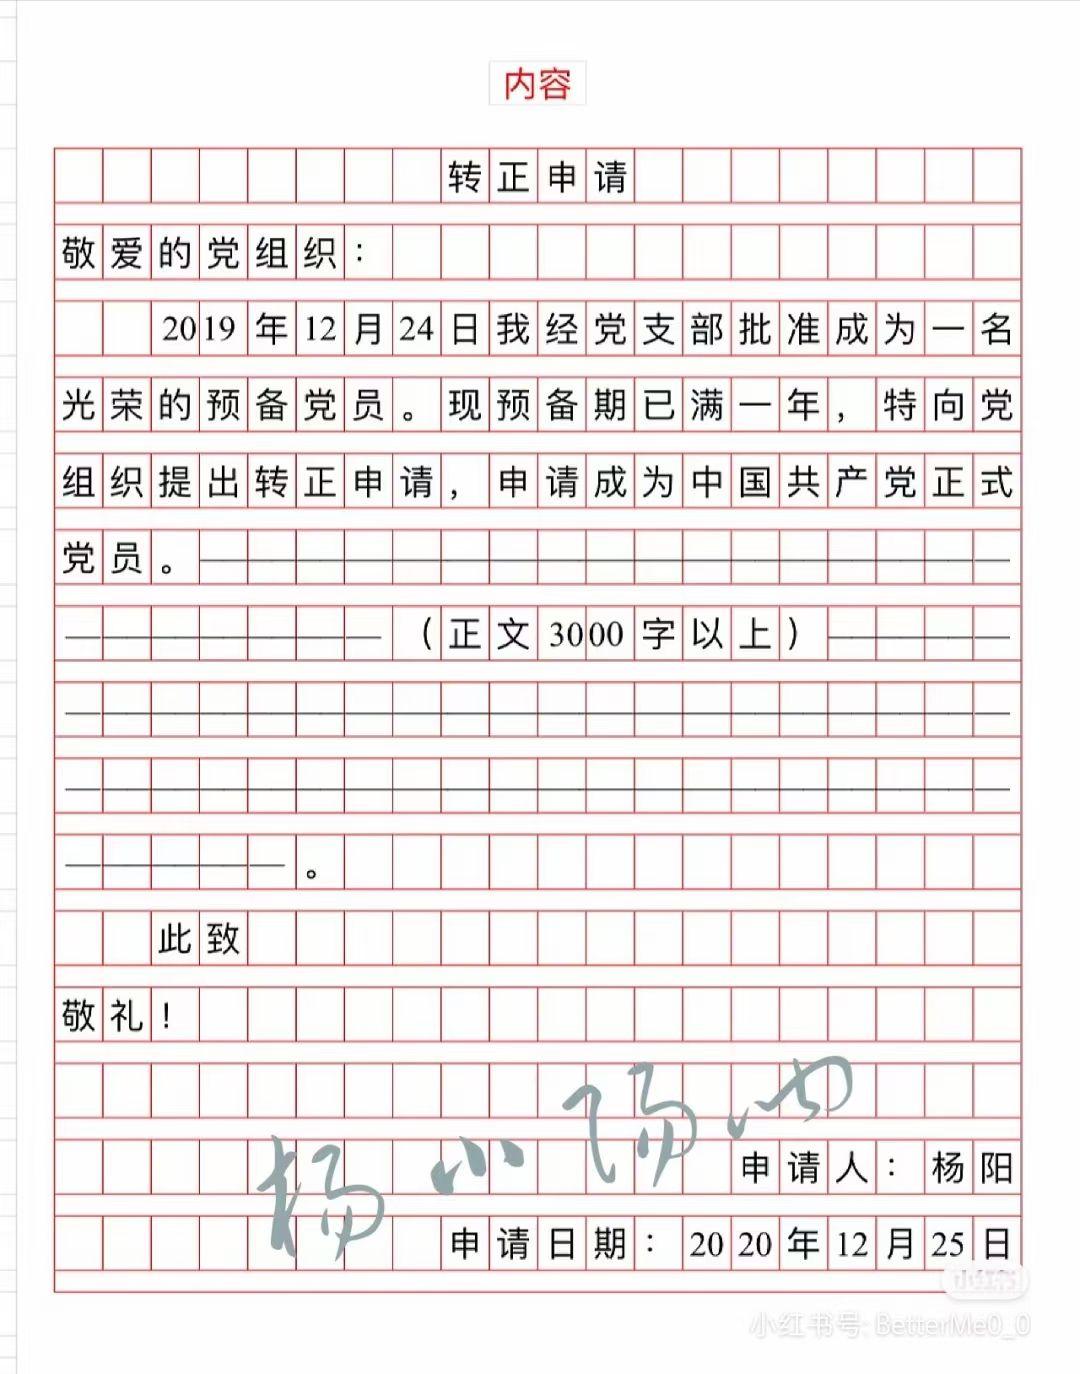 内容
转正申请
敬爱的党组织：
2019年12月24日我经党支部批准成为一名
光荣的预备党员。现预备期已满一年，特向党
组织提出转正申请，申请成为中国共产党正式
党员。————————————————
———————（正文3000字以上）————
————————————————————
————————————————————
—————。
此致
敬礼！
杨小阳
申请人：杨阳
申请日期：2020年12月25日
小红书
小红书号: BetterMe0_0